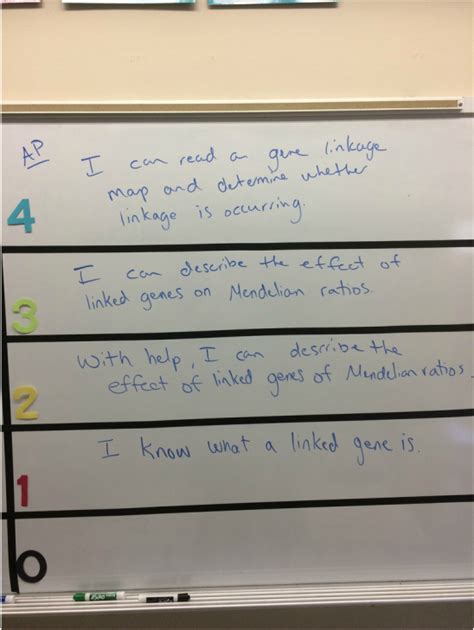 AP
I can read a gene linkage
map and determine whether
linkage is occurring.
4
I can describe the effect of
linked genes on Mendelian ratios.
3
With help, I can describe the
effect of linked genes of Mendelian ratios.
2
I know what a linked gene is.
1
0
EXPO